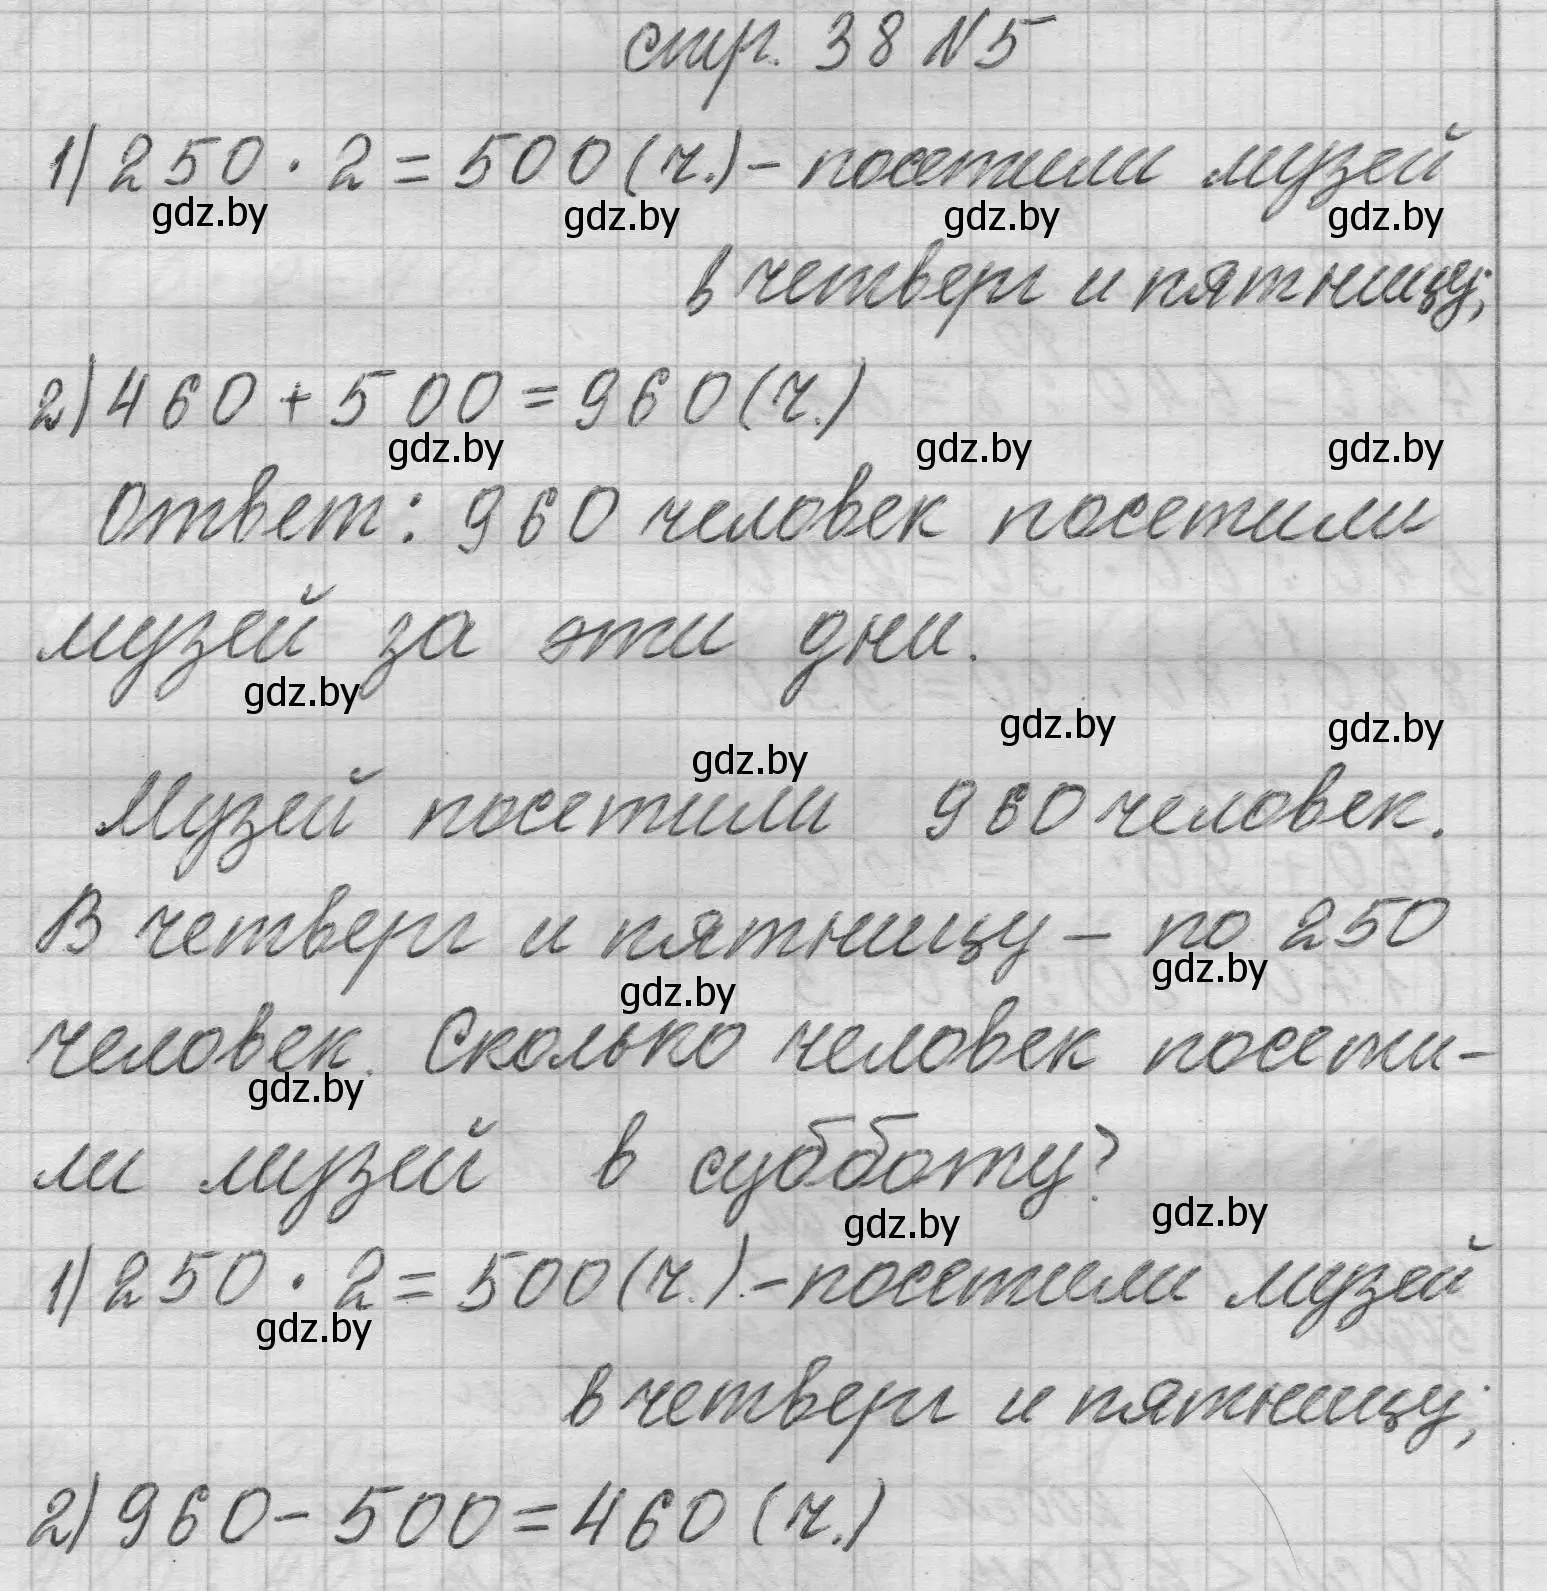 стр. 38 №5
1) 250 · 2 = 500 (ч.) - посетили музей
gdz.by gdz.by gdz.by gdz.by
в четверг и пятницу;
2) 460 + 500 = 960 (ч.)
gdz.by gdz.by gdz.by
Ответ: 960 человек посетили
музей за эти дни.
gdz.by
gdz.by gdz.by
gdz.by
Музей посетили 960 человек.
В четверг и пятницу - по 250
gdz.by gdz.by
человек. Сколько человек посети-
gdz.by
ли музей в субботу?
gdz.by gdz.by
1) 250 · 2 = 500 (ч.) - посетили музей
gdz.by
в четверг и пятницу;
2) 960 - 500 = 460 (ч.)